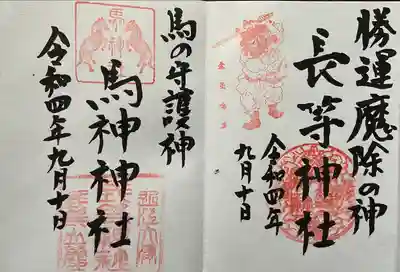 勝運魔除の神
長等神社
令和四年
九月十日
馬神
馬の守護神
馬神神社
令和四年九月十日